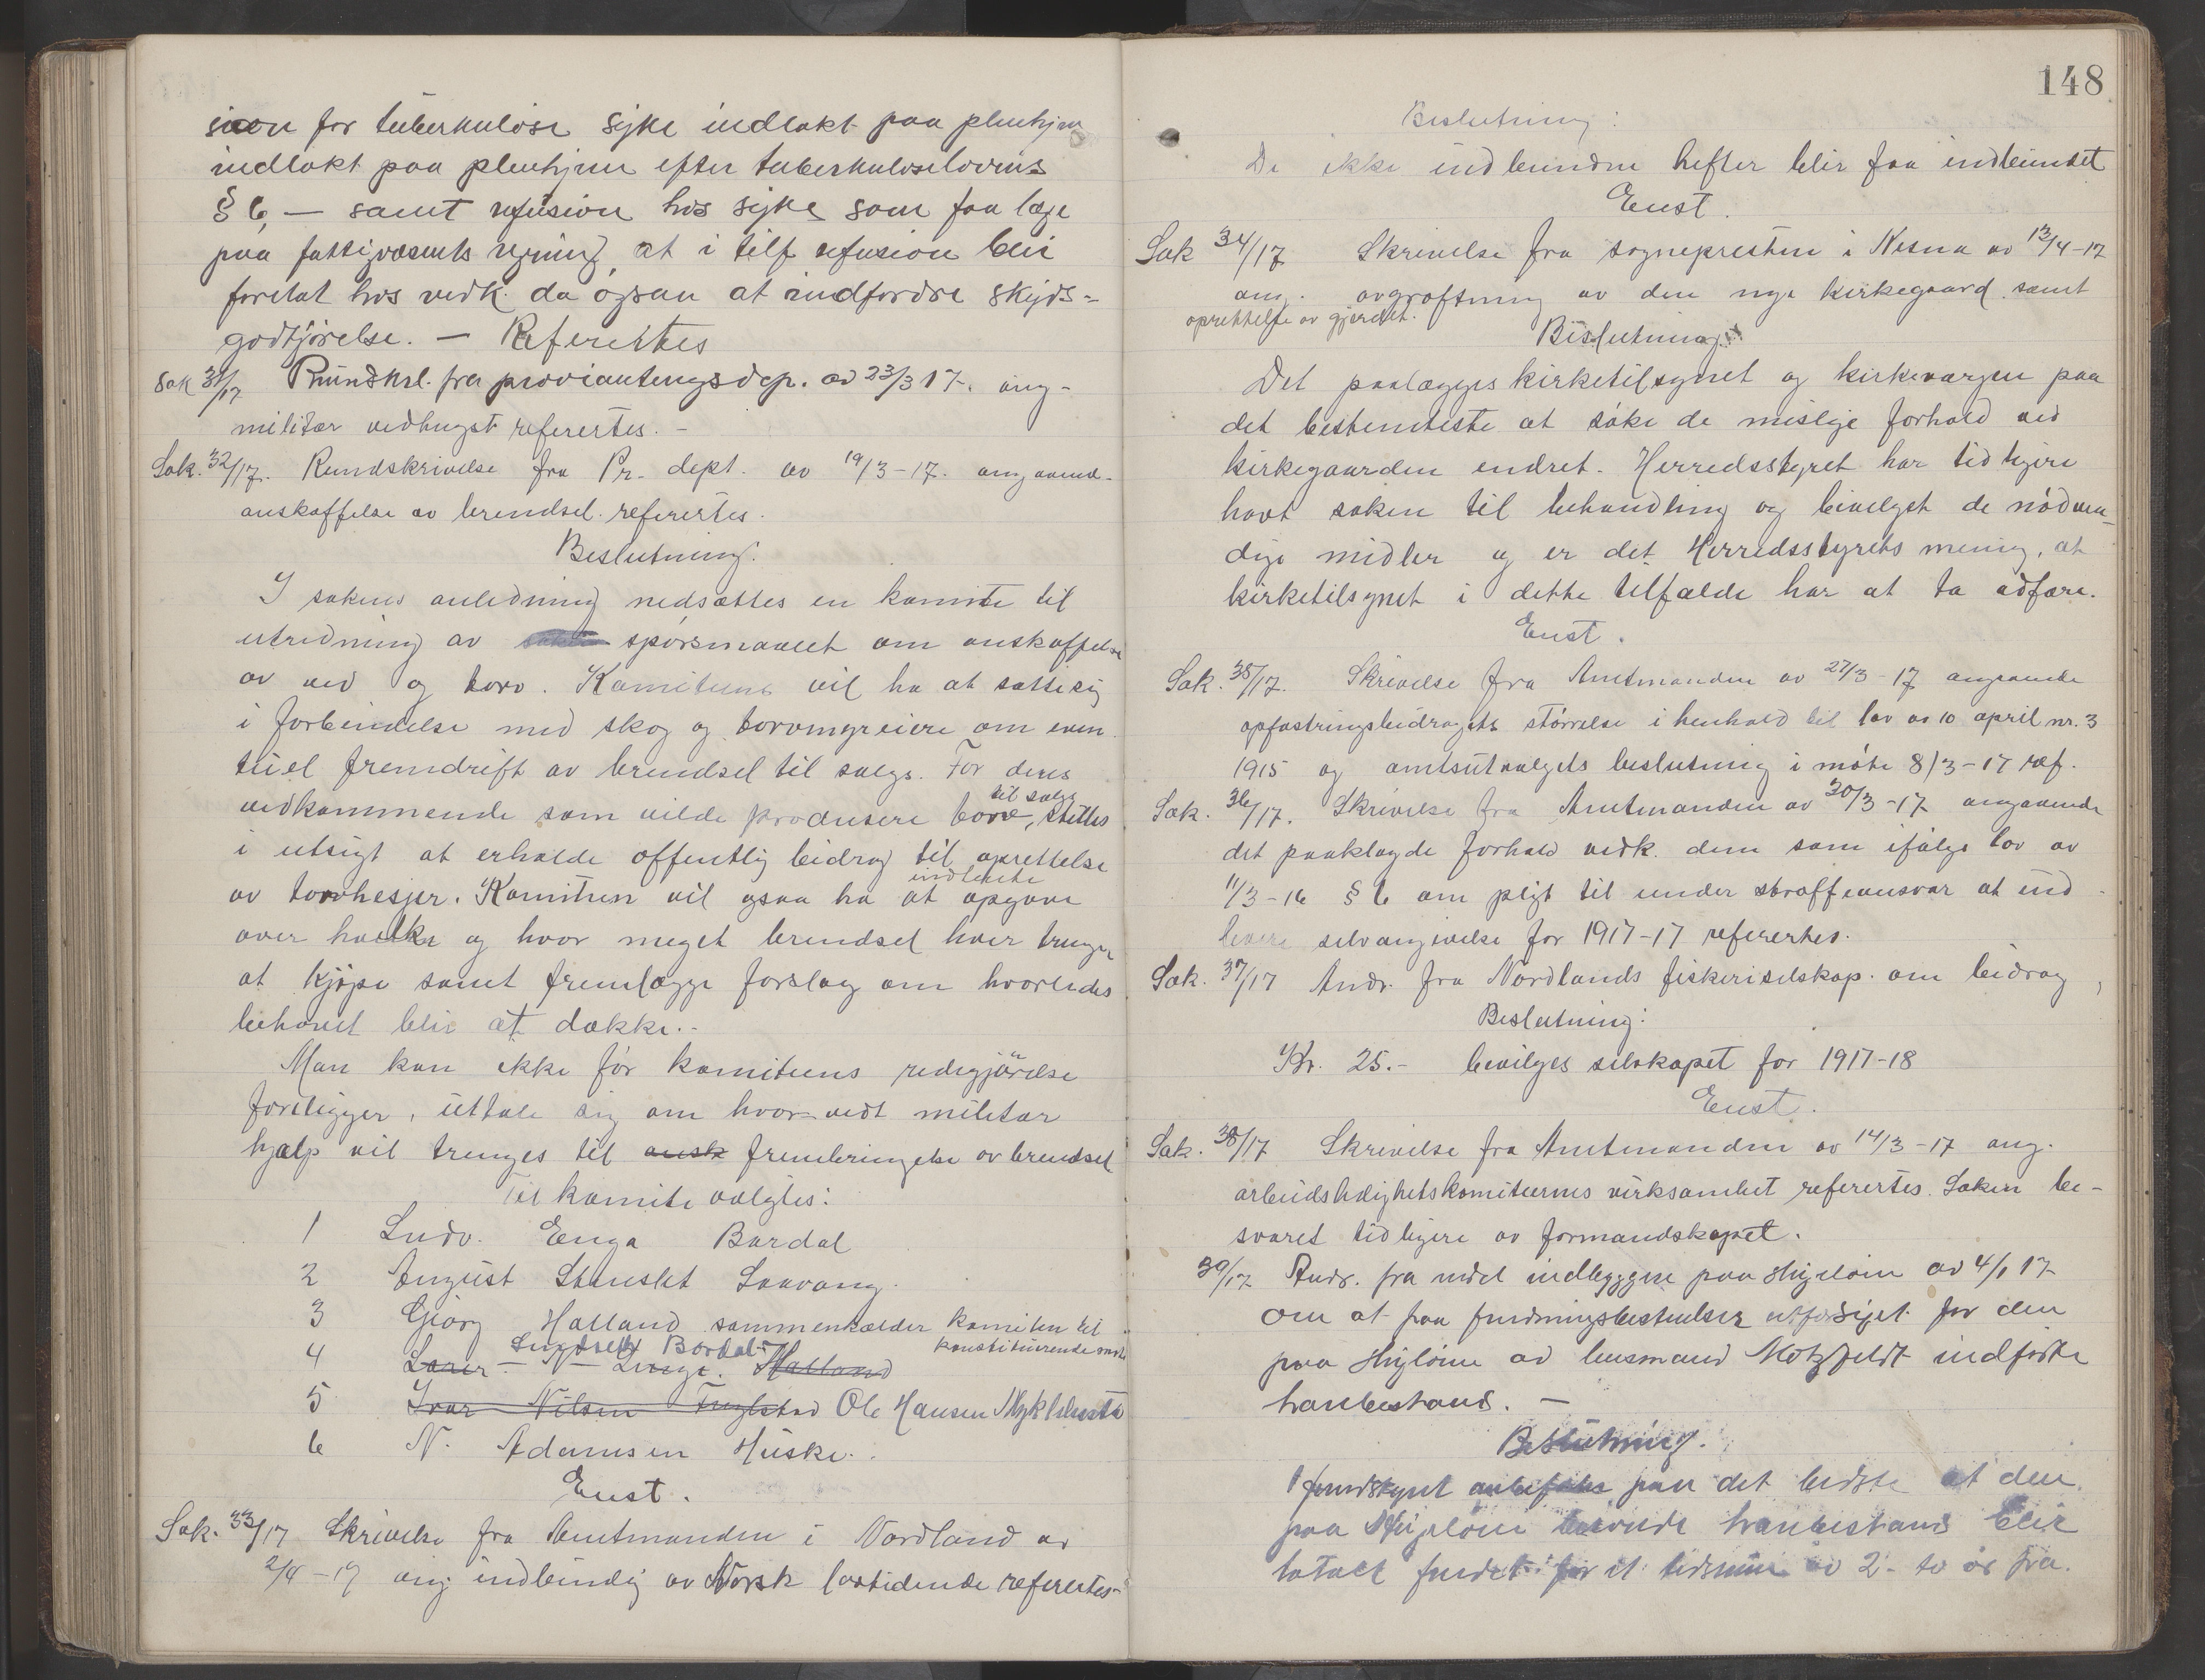 sion for tuberkuløse syke indlakt paa pleiehjem
indlakt paa pleiehjem efter tuberkuloselovens
§ 6, — samt refusion hos syke som faa læge
paa fattigvæsenets regning, at i tilf refusion blir
foretat hos vedk. da ogsaa at indfordre skyds-
godtjørelse. — Refereites
Sak 31/17 Rundskrl. fra provianteringsdep. av 23/3 17. ang-
militær vedhugst referertes. -
Sak. 32/17. Rundskrivelse fra Pr. dept. av 19/3-17. angaaend-
anskaffelse av brendsel. referertes.
Beslutning:
I sakens anledning nedsættes en komite til
utredning av spørsmaalet om anskaffelse
av ved og torv. Komiteens vil ha at sætte sig
i forbindelse med skog og torvmyreiere om even
tuel fremdrift av brendsel til salgs. For deres
vedkommende som vilde produsere torv, til salgs stilles
i utsigt at erholde offentlig bidrag til oprettelse
av torvhesjer. Komiteen vil ogsaa ha at indhente opgave
over hvilke og hvor meget brendsel hver trenger
at kjøpe samt fremlægge forslag om hvorledes
behovet blir at dække.-
Man kan ikke før komiteens redegjørelse
foreligger, uttale sig om hvorvidt militær
hjælp vil trenges til ansk frembringelse av brendsel
Til komite valgtes:
1 Ludv. Enga Bardal
2 August Stenslet Saavang.
3 Georg Halland sammenkalder komiteen til
konstituerende møte
4 Bardal Halland
5 Ivar Nilsen Ole Hansen Myklebust
6 N. Adamsen Huske.
Enst.
Sak. 33/17 Skrivelse fra Amtmanden i Nordland av
2/4-17 ang indbinding av Norsk lovtidende referertes-
148
Beslutning:
De ikke indbundne hefter blir faa indbundet
Enst.
Sak 34/17 Skrivelse fra sognepresten i Nesna av 13/4-17
ang. avgrøftning av den nye kirkegaard samt
oprettelse av gjerdet.
Beslutning
Det paalægges kirketilsynet og kirkevergen paa
det bestemteste at søke de mislige forhold ved
kirkegaarden endret. Herredsstyret har tidligere
havt saken til behandling og bevilget de nødven-
dige midler og er det Herredsstyrets mening, at
kirketilsynet i dette tilfælde har at ta affære.
Enst.
Sak. 35/17. Skrivelse fra Amtmanden av 27/3-17 angaaende
opfostringsbidragets størrelse i henhold til lov av 10 april nr. 3
1915 og amtsutvalgets beslutning i møte 8/3-17 ref.
Sak. 36/17. Skrivelse fra Amtmanden av 30/3-17 angaaende
det paaklagde forhold vedk. dem som ifølge lov av
11/3-16 § 6 om pligt til under straffeansvar at ind-
levere selvangivelse for 1917-17 referertes.
Sak. 37/17 Andr. fra Nordlands fiskeriselskap. om bidrag,
Beslutning:
Kr. 25.- bevilges selskapet for 1917-18
Enst.
Sak. 38/17 Skrivelse fra Amtmanden av 14/3-17 ang.
arbeidsledighetskomiteernes virksamhet referertes. Saken be-
svaret tidligere av formandskapet.
39/17 Andr. fra indbyggere paa av 4/1 17
om at faa fredningsbestemelser for den
paa av lensmand Motzfeldt indførte
harebestand. —
Beslutning.
paa det bedste at den
paa harebestand blir
totalt fredet for et tidsrum av 2- to år fra.